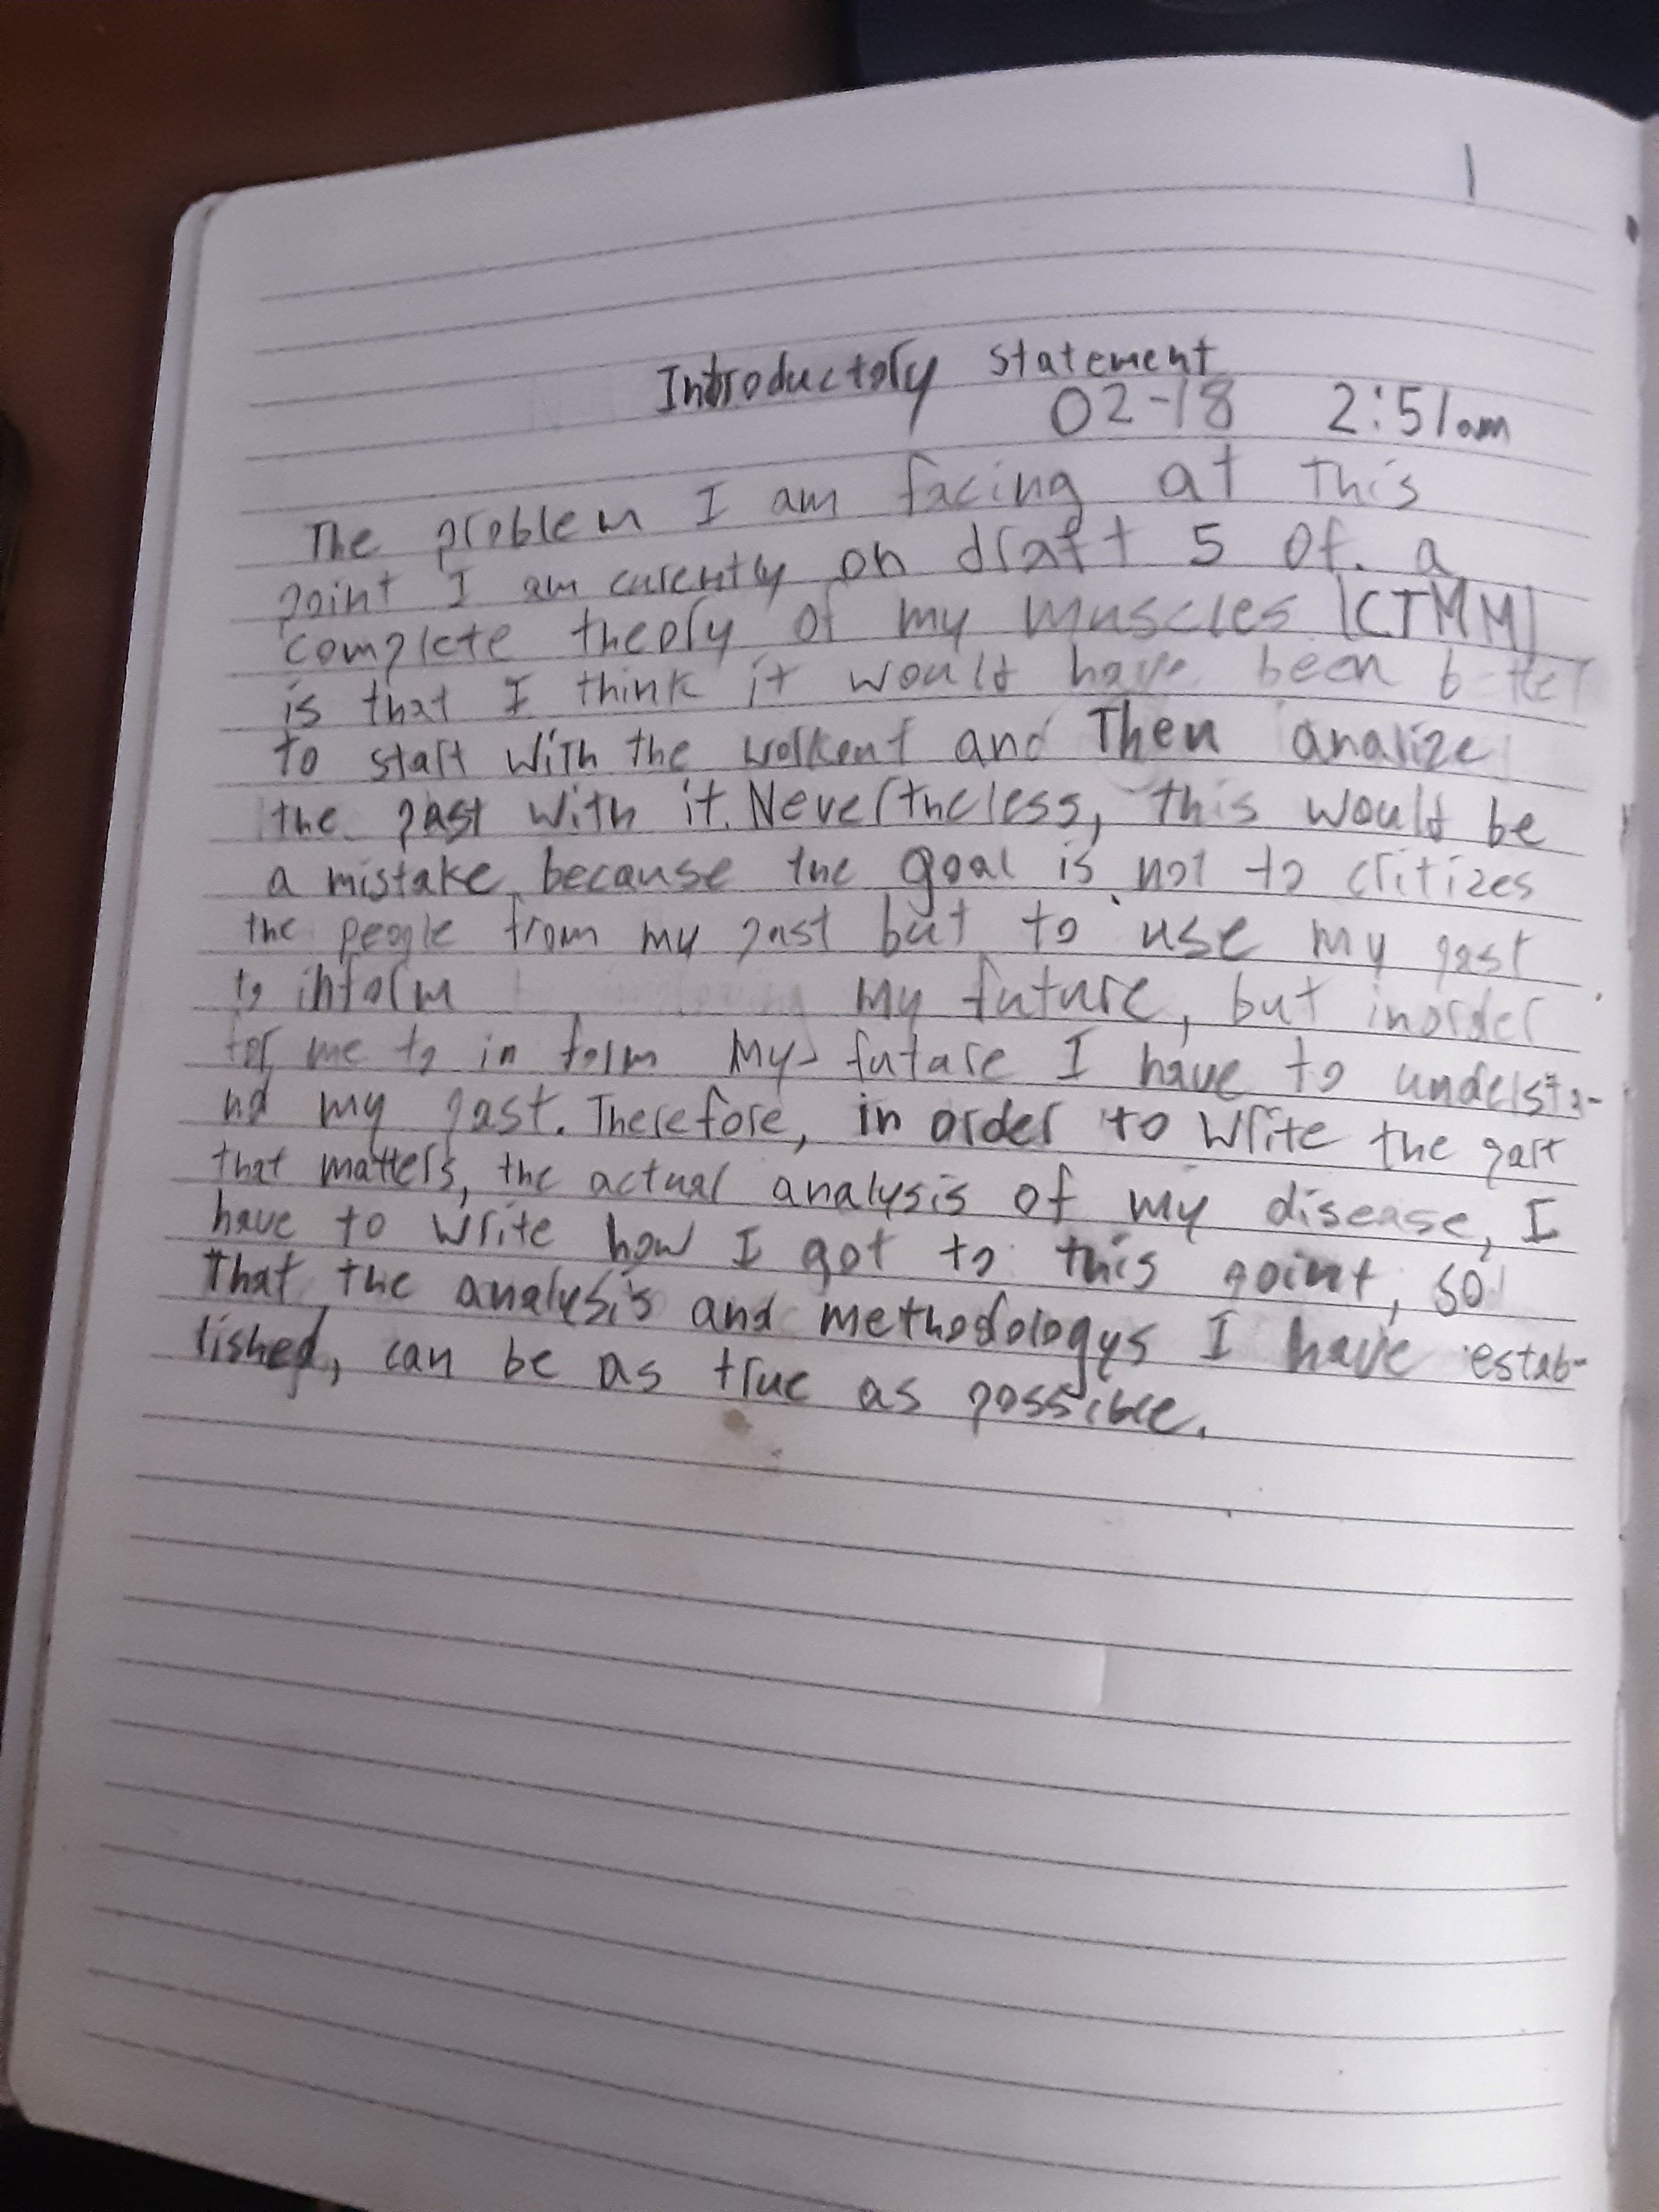 1
Introductory statement
02-18 2:51am
The problem I am facing at this
point I am curently on draft 5 of. a
complete theory of my muscles |CTMM|
is that I think it would have been better
to start with the workout and Then analize
the past with it. Nevertheless, this would be
a mistake because the goal is not to critizes
the people from my past but to use my past
to inform my future, but inorder
for me to in form my future I have to understa-
nd my past. Therefore, in order to write the part
that matters, the actual analysis of my disease, I
have to write how I got to this point, so
that the analysis and methodologys I have estab-
lished, can be as true as possible.